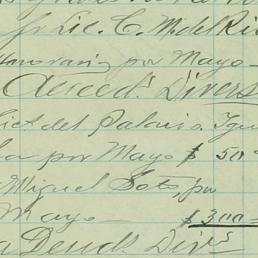 Lic. C. M. del Ri
Honorarios por Mayo
Acreed. Divers
del Palacio. Igu
por Mayo $ 50
Miguel Soto, por
Mayo $ 300
Deud. Divs